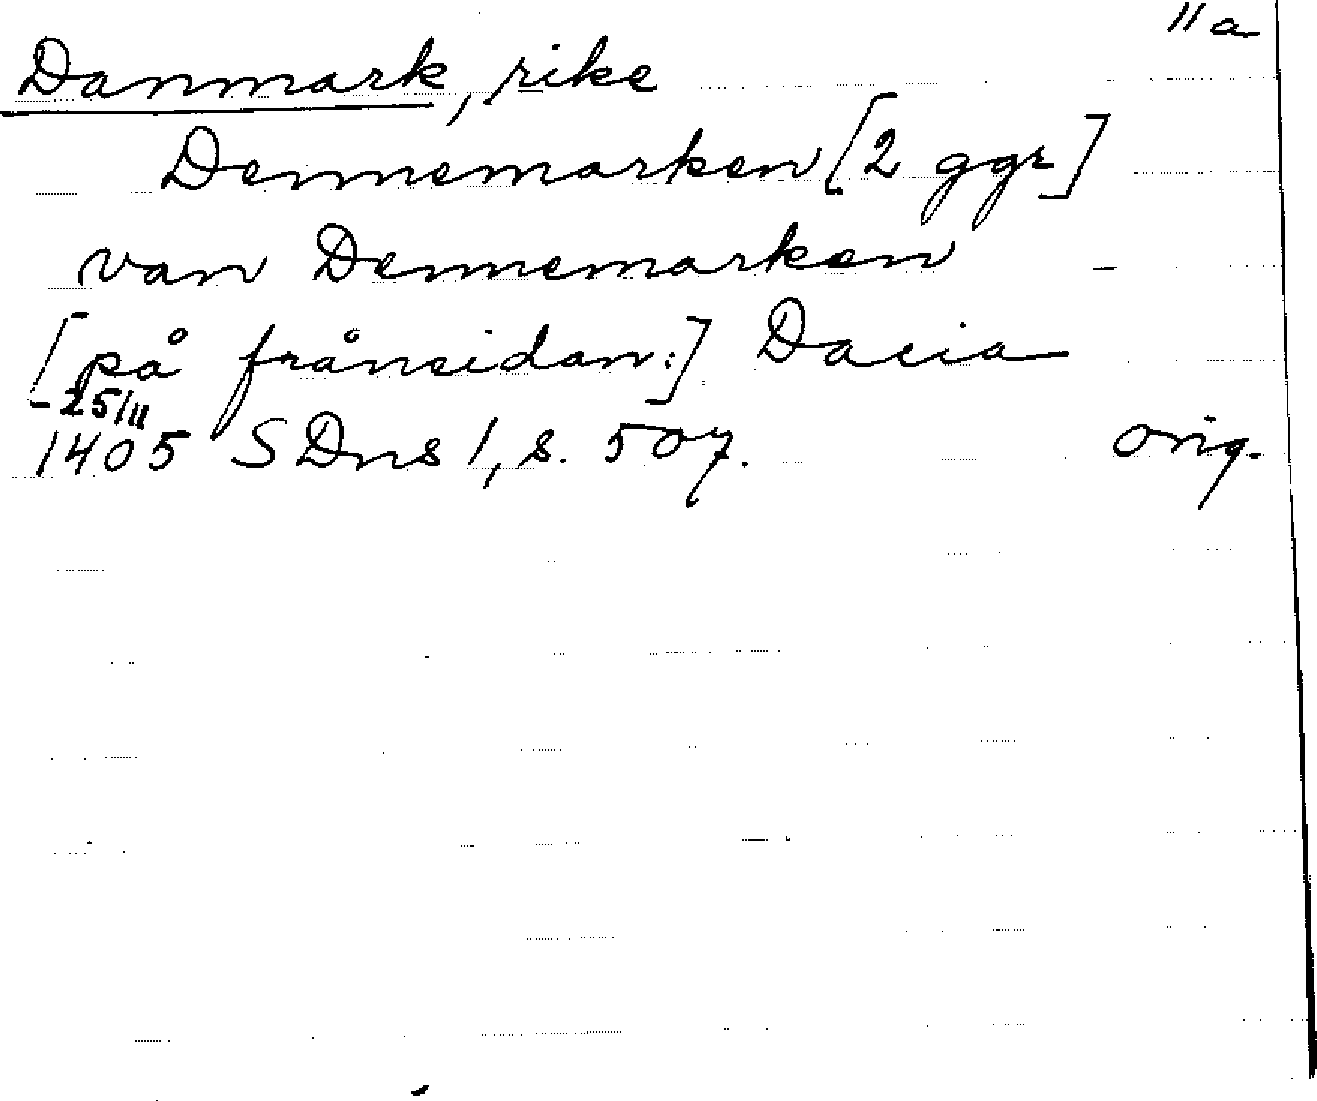 11a
Danmark, rike
Dennemarken [2 ggr]
van Dennemarken
[på frånsidan:] Dacia
25/11
1405 SDns 1, s. 507. orig.